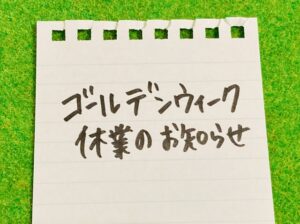 ゴールデンウィーク
休業のお知らせ